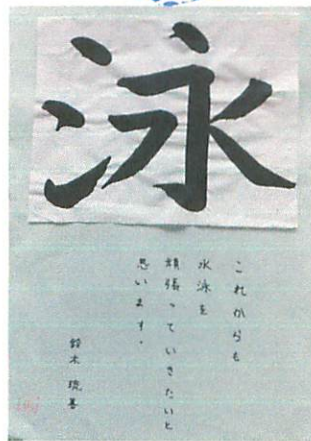 泳
これからも
水泳を
頑張っていきたいと
思います。
鈴木 琉